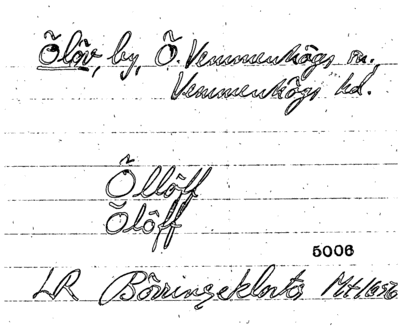 Ölöv, by, Ö. Vemmenhögs sn.,
Vemmenhögs hd.
Öllöff
Ölöff
5006
LR Börringekloster